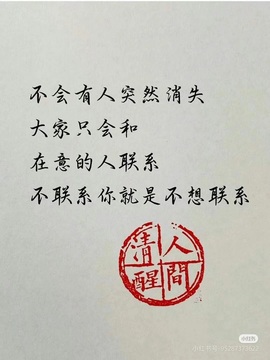 不会有人突然消失
大家只会和
在意的人联系
不联系你就是不想联系
人間清醒
小红书